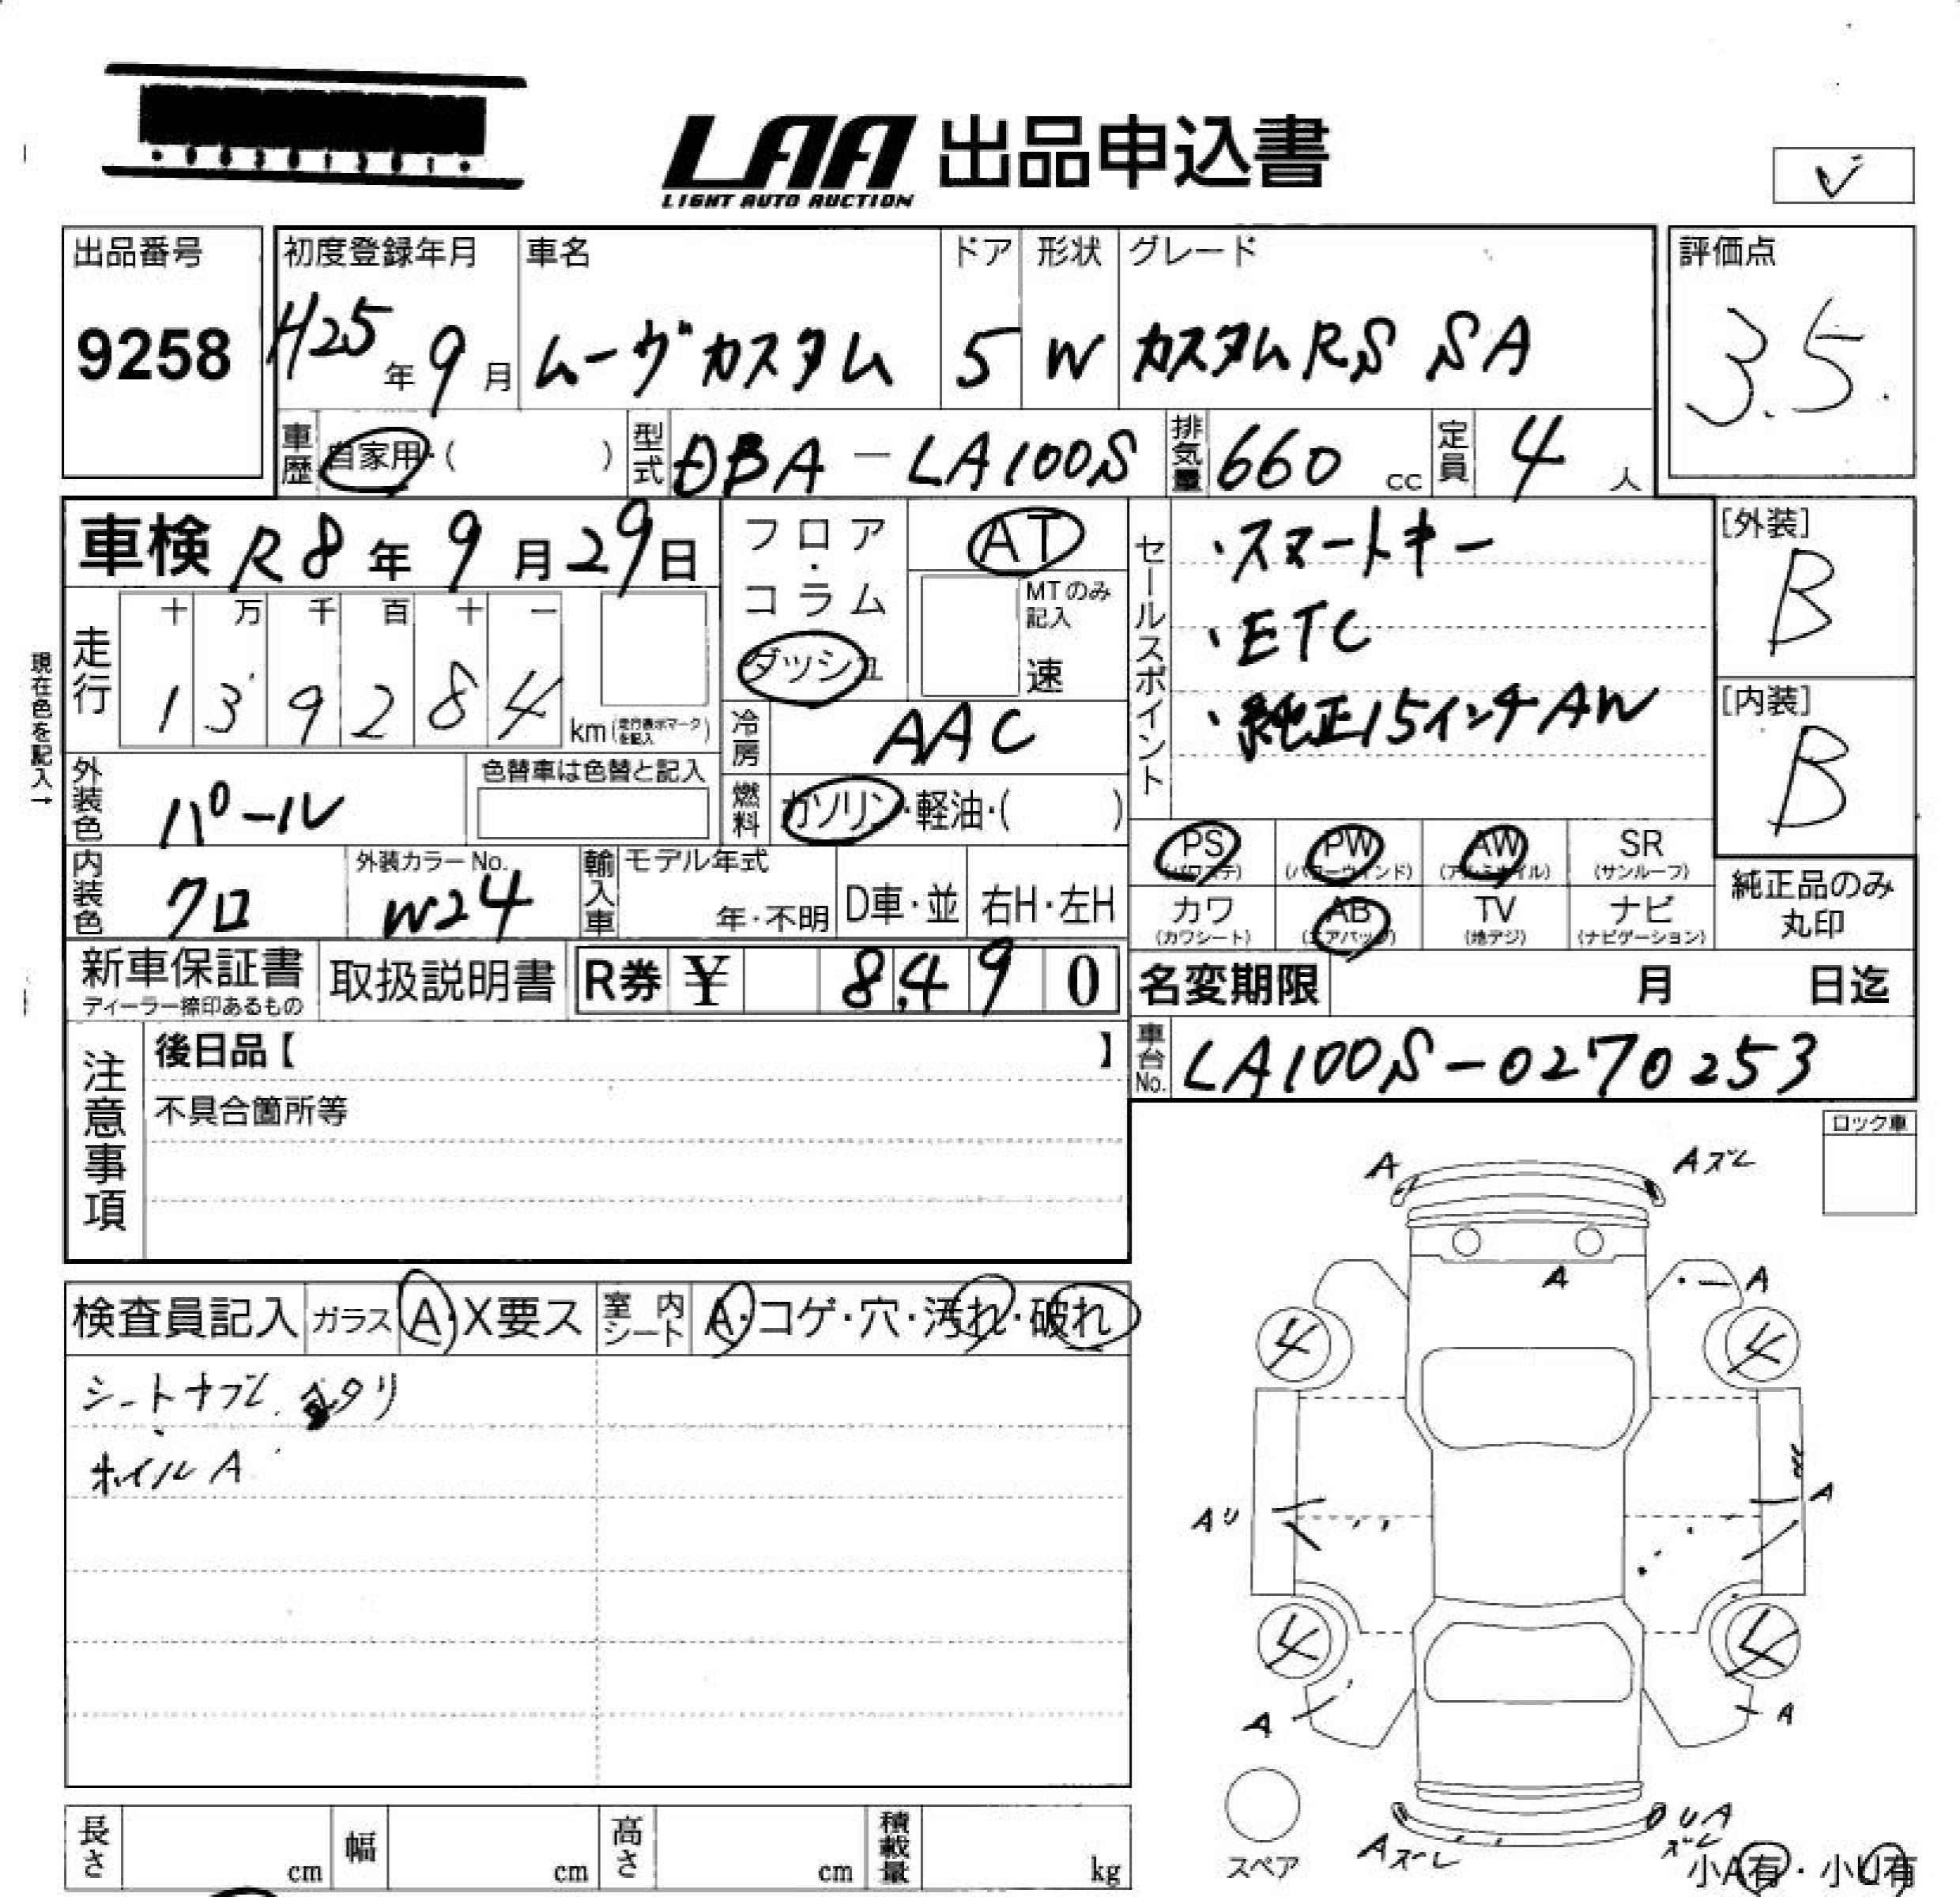 LAA 出品申込書
LIGHT AUTO AUCTION
出品番号
9258
初度登録年月
H25年9月
車名
ムーヴカスタム
ドア
5
形状
W
グレード
カスタムRS SA
評価点
3.5
車歴 自家用・( )
型式 DBA-LA100S
排気量 660 cc
定員 4 人
車検 R8年9月29日
フロア・コラム
ダッシュ
AT
MTのみ記入
速
セールスポイント
・スマートキー
・ETC
・純正15インチAW
[外装]
B
[内装]
B
現在色を記入→
走行
十 万 千 百 十 一
1 3 9 2 8 4
km(走行表示マークを記入)
冷房 AAC
外装色 パール
色替車は色替と記入
燃料 ガソリン・軽油・( )
内装色 クロ
外装カラーNo.
W24
輸入車 モデル年式
年・不明
D車・並
右H・左H
PS (パワステ)
PW (パワーウィンド)
AW (アルミホイル)
SR (サンルーフ)
カワ (カワシート)
AB (エアバッグ)
TV (地デジ)
ナビ (ナビゲーション)
純正品のみ
丸印
新車保証書
ディーラー捺印あるもの
取扱説明書
R券 ¥ 8,490
名変期限 月 日迄
車台No. LA100S-0270253
注意事項
後日品【 】
不具合箇所等
ロック車
検査員記入
ガラス A・X要ス
室内シート A・コゲ・穴・汚れ・破れ
シートナブレ
ホイルA
A
Aズレ
A
A
4
4
A
4
4
A
A
Aズレ
UA
ズレ
スペア
小A有・小U有
長さ cm
幅 cm
高さ cm
積載量 kg